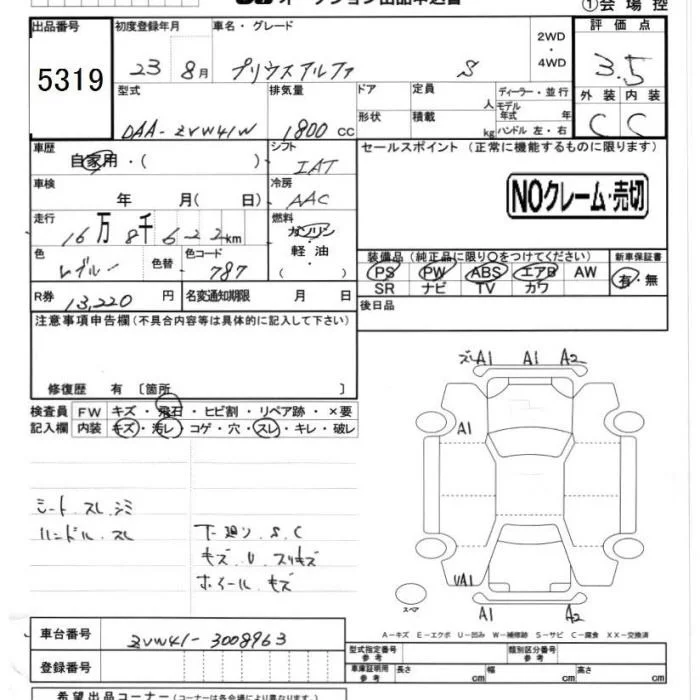 ①会場控
出品番号
5319
初度登録年月
23 8月
車名・グレード
プリウスアルファ S
2WD
・
4WD
評価点
3.5
型式
DAA-ZVW41W
排気量
1800 CC
ドア
形状
定員
人
積載
kg
ディーラー・並行
モデル年式 年
ハンドル 左・右
外装 内装
C C
車歴
自家用・( )
シフト
IAT
セールスポイント(正常に機能するものに限ります)
NOクレーム・売切
車検
年 月( 日)
冷房
AAC
走行
16万8千622km
燃料
ガソリン
軽油
・( )
色
色替
色コード
787
装備品(純正品に限り○をつけてください)
PS PW ABS エアB AW
SR ナビ TV カワ
新車保証書
有・無
R券
13,220円
名変通知期限 月 日
後日品
注意事項申告欄(不具合内容等は具体的に記入して下さい)
修復歴 有〔箇所 〕
検査員記入欄
FW キズ・飛石・ヒビ割・リペア跡・×要
内装 キズ・汚レ・コゲ・穴・スレ・キレ・破レ
シート スレ シミ
ハンドル スレ
下廻り S C
キズ U スリキズ
ホイール キズ
A1 A1 A2
A1
UA1
A1 A2
スペア
A-キズ E-エクボ U-凹み W-補修跡 S-サビ C-腐食 XX-交換済
車台番号
ZVW41-3008963
登録番号
型式指定番号
参考
類別区分番号
参考
車庫証明用
参考
長さ cm 幅 cm 高さ cm
希望出品コーナー(コーナーは各会場により異なります)